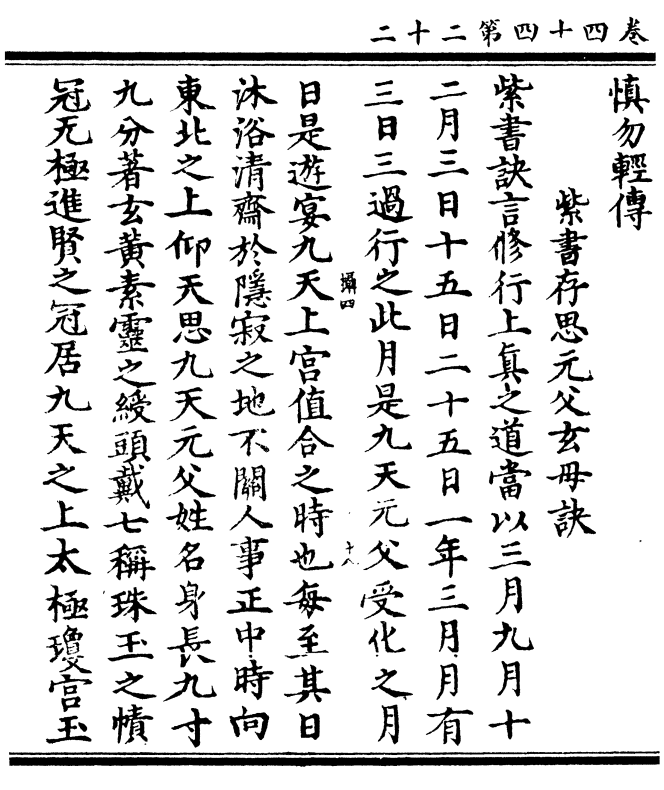 卷四十四第二十二
慎勿輕傳
紫書存思元父玄母訣
紫書訣言修行上真之道當以三月九月十
二月三日十五日二十五日一年三月月有
三日三過行之此月是九天元父受化之月
攝四
十八
日是遊宴九天上宮值合之時也每至其日
沐浴清齋於隱寂之地不關人事正中時向
東北之上仰天思九天元父姓名身長九寸
九分著玄黃素靈之綬頭戴七稱珠玉之幘
冠无極進賢之冠居九天之上太極瓊宮玉